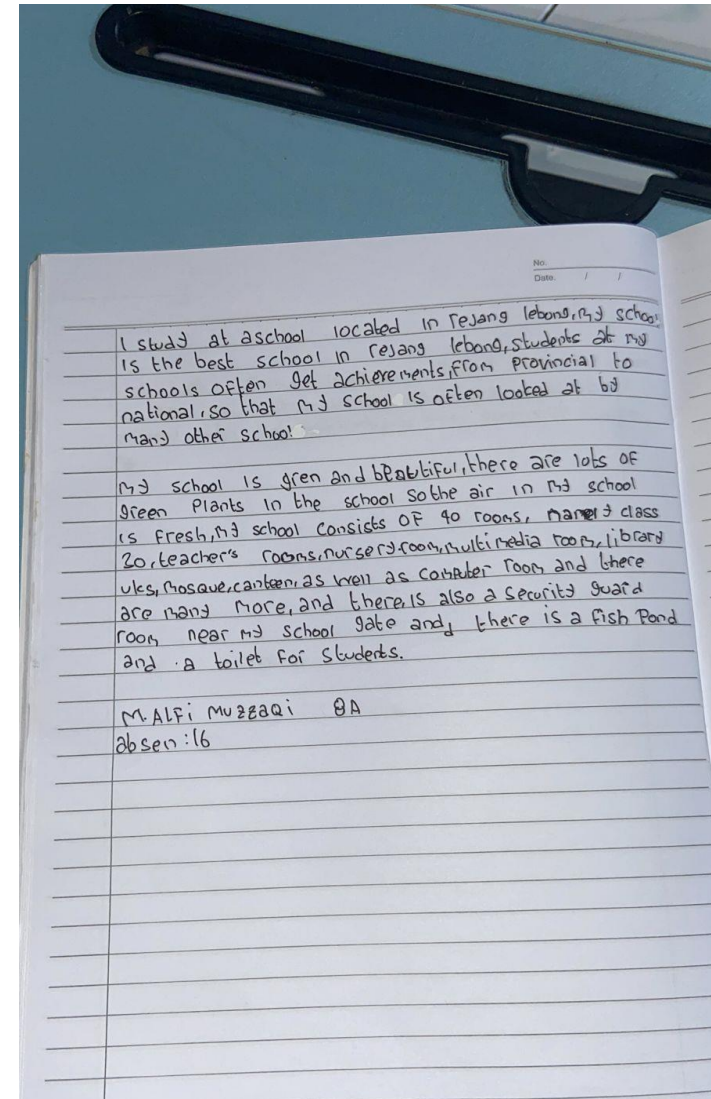 No.
Date. / /
I study at aschool located in rejang lebong, my school
is the best school in rejang lebong, students at my
schools often get achievements, from provincial to
national, so that my school is often looked at by
many other school
my school is gren and beautiful, there are lots of
green Plants in the school so the air in my school
is fresh, my school consists of 40 rooms, namely class
20, teacher's rooms, nursery room, multimedia room, library
uks, mosque, canteen, as well as computer room and there
are many more, and there is also a security guard
room near my school gate and, there is a fish Pond
and a toilet for students.
M. ALFi MuzzaQi 8A
absen : 16